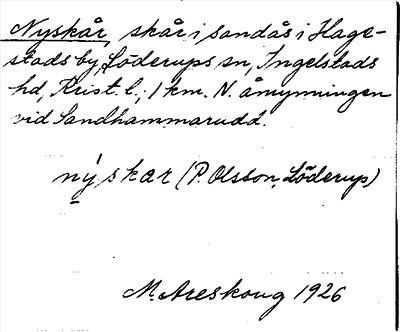 Nyskår, skår i sandås i Hage-
stads by, Löderups sn, Ingelstads
hd, Krist. l.; 1 km. N. åmynningen
vid Sandhammarudd.
nýskar (P. Olsson, Löderup)
M. Areskoug 1926